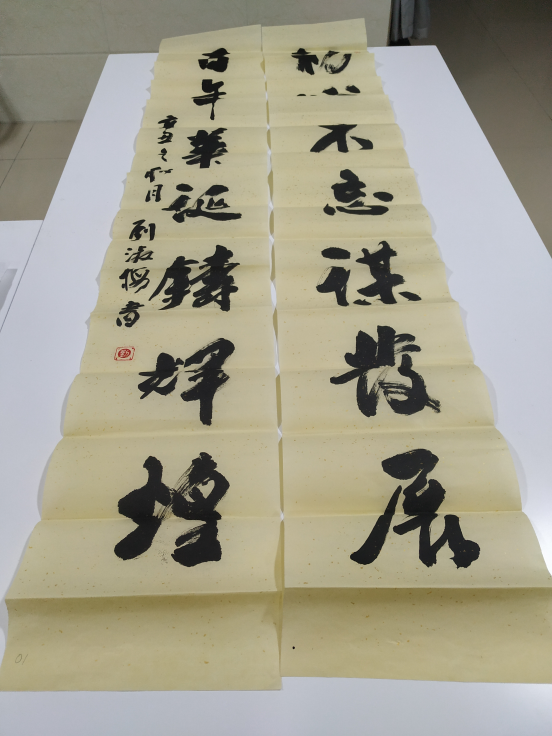 初心不忘謀發展
百年華誕鑄輝煌
辛丑之秋月 劉淑書